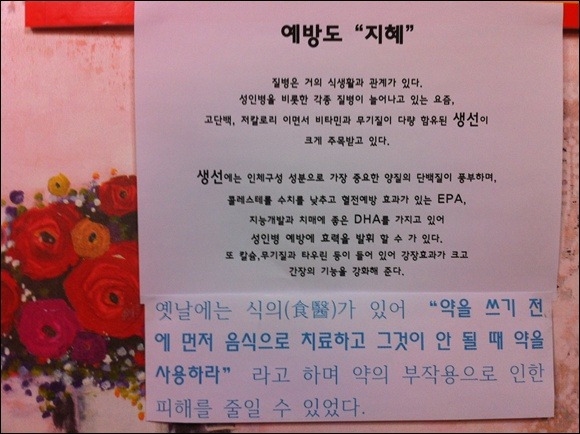 예방도 “지혜”
질병은 거의 식생활과 관계가 있다.
성인병을 비롯한 각종 질병이 늘어나고 있는 요즘,
고단백, 저칼로리 이면서 비타민과 무기질이 다량 함유된 생선이
크게 주목받고 있다.
생선에는 인체구성 성분으로 가장 중요한 양질의 단백질이 풍부하며,
콜레스테롤 수치를 낮추고 혈전예방 효과가 있는 EPA,
지능개발과 치매에 좋은 DHA를 가지고 있어
성인병 예방에 효력을 발휘 할 수 가 있다.
또 칼슘,무기질과 타우린 등이 들어 있어 강장효과가 크고
간장의 기능을 강화해 준다.
옛날에는 식의(食醫)가 있어 “약을 쓰기 전
에 먼저 음식으로 치료하고 그것이 안 될 때 약을
사용하라” 라고 하며 약의 부작용으로 인한
피해를 줄일 수 있었다.